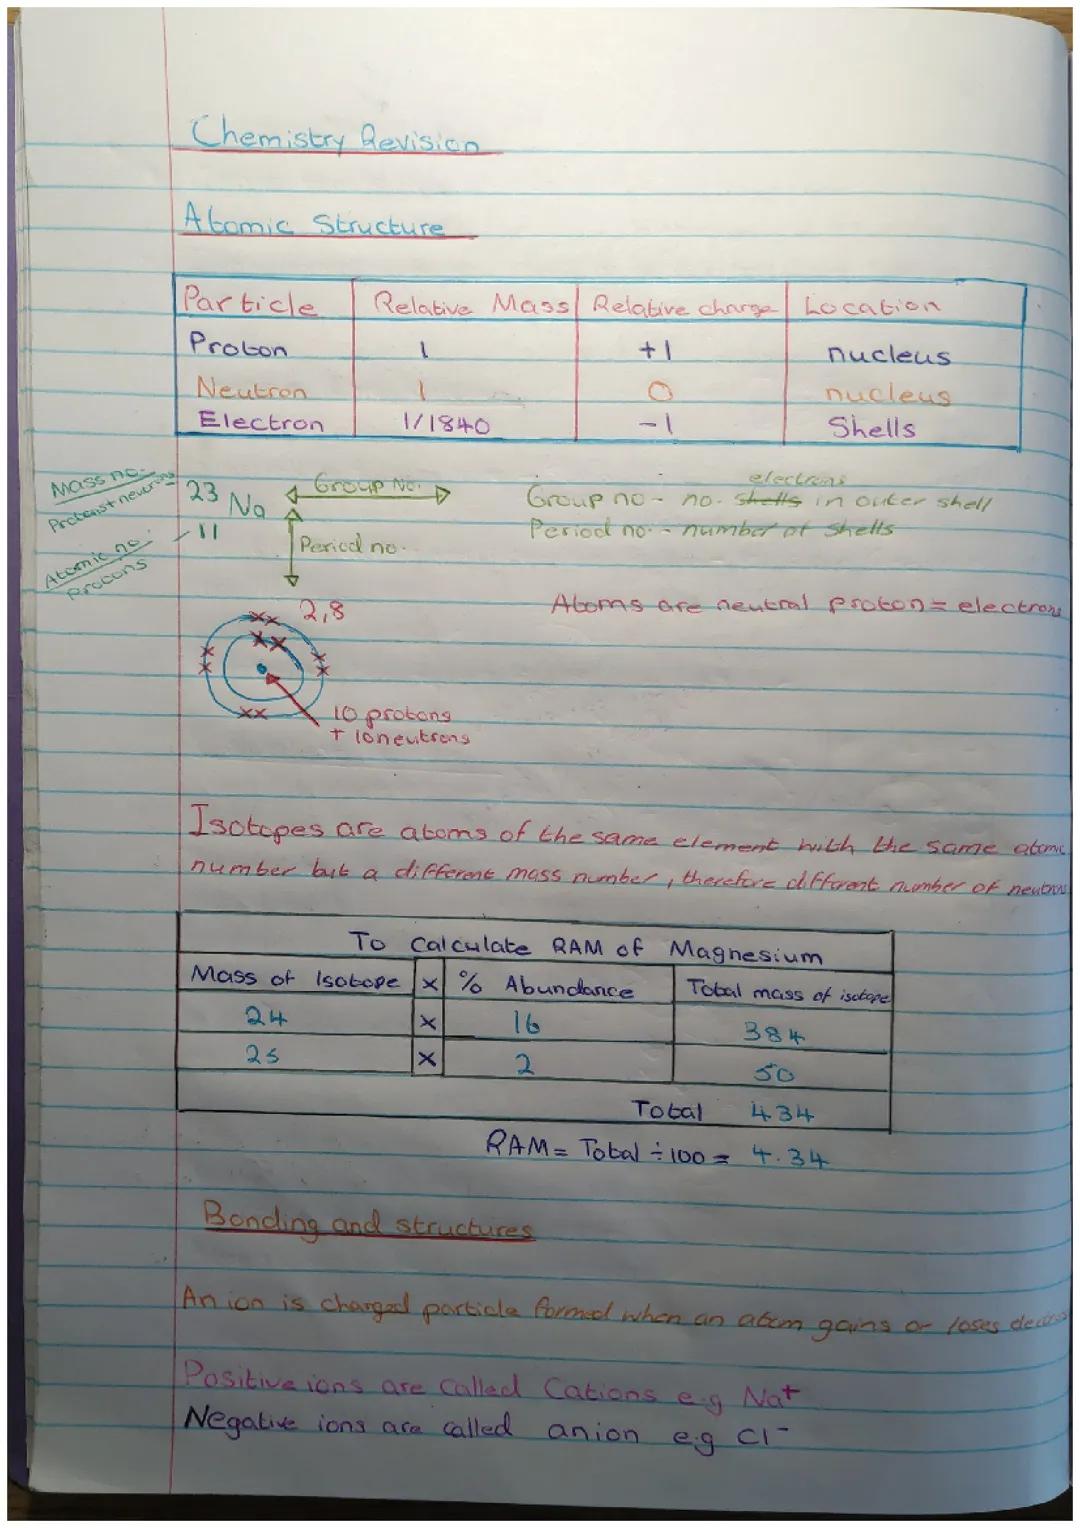 Chemistry Revision
Atomic Structure
Particle Relative Mass Relative charge Location
Proton 1 +1 nucleus
Neutron 1 0 nucleus
Electron 1/1840 -1 Shells
Mass no.
Protons + neutrons
23 Na
11
Atomic no.
Protons
Group No.
Period no.
electrons
Group no - no. shells in outer shell
Period no. - number of shells
2,8
Atoms are neutral proton = electrons
10 protons
+ 10 neutrons
Isotopes are atoms of the same element with the same atomic
number but a different mass number, therefore different number of neutrons
To Calculate RAM of Magnesium
Mass of Isotope x % Abundance Total mass of isotope
24 x 16 384
25 x 2 50
Total 434
RAM = Total ÷ 100 = 4.34
Bonding and structures
An ion is charged particle formed when an atom gains or loses
Positive ions are called Cations e.g Na+
Negative ions are called anion e.g Cl-